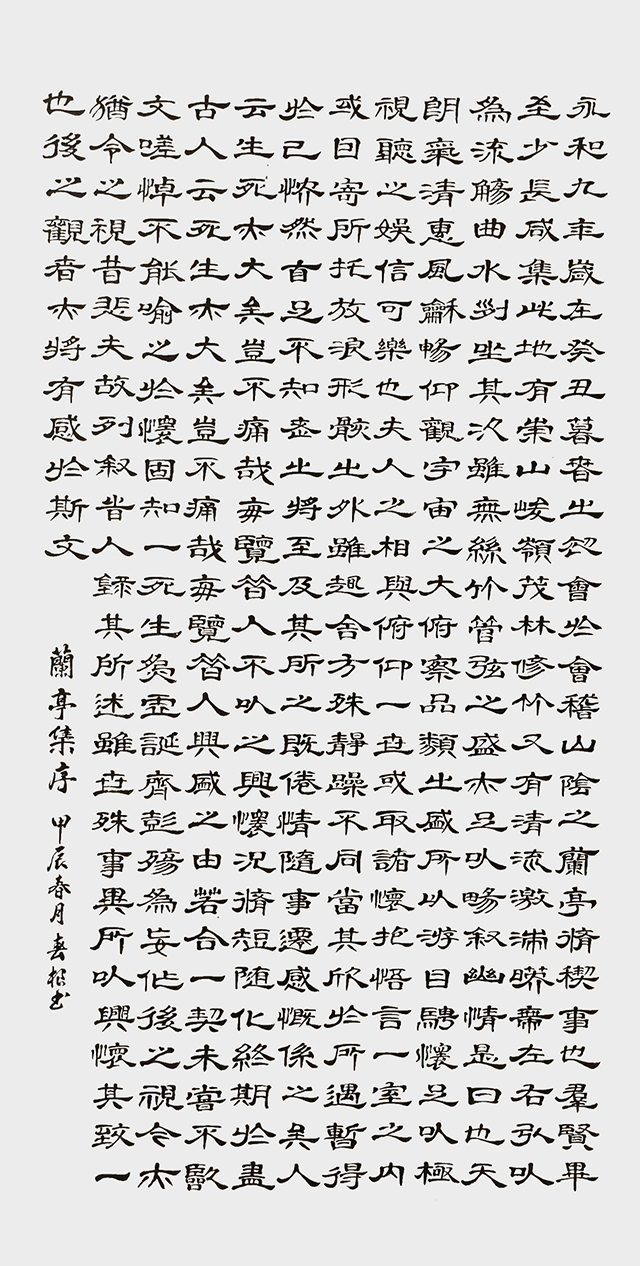 永和九年歲在癸丑暮春之初會於會稽山陰之蘭亭脩稧事也羣賢畢
至少長咸集此地有崇山峻嶺茂林修竹又有清流激湍暎帶左右引以
為流觴曲水列坐其次雖無絲竹管弦之盛亦足以暢叙幽情是日也天
朗氣清惠風龢暢仰觀宇宙之大俯察品類之盛所以游目騁懷足以極
視聽之娛信可樂也夫人之相與俯仰一世或取諸懷抱悟言一室之內
或因寄所托放浪形骸之外雖趣舍万殊靜躁不同當其欣於所遇暫得
於己怏然自足不知老之將至及其所之既倦情隨事遷感慨係之矣人
云生死亦大矣豈不痛哉每覽昔人不以之興懷況脩短随化終期於盡
古人云死生亦大矣豈不痛哉每覽昔人興感之由若合一契未嘗不臨
文嗟悼不能喻之於懷固知一死生為虛誕齊彭殤為妄作後之視今亦
猶今之視昔悲夫故列叙時人錄其所述雖世殊事異所以興懷其致一
也後之觀者亦將有感於斯文
蘭亭集序 甲辰春月春松书